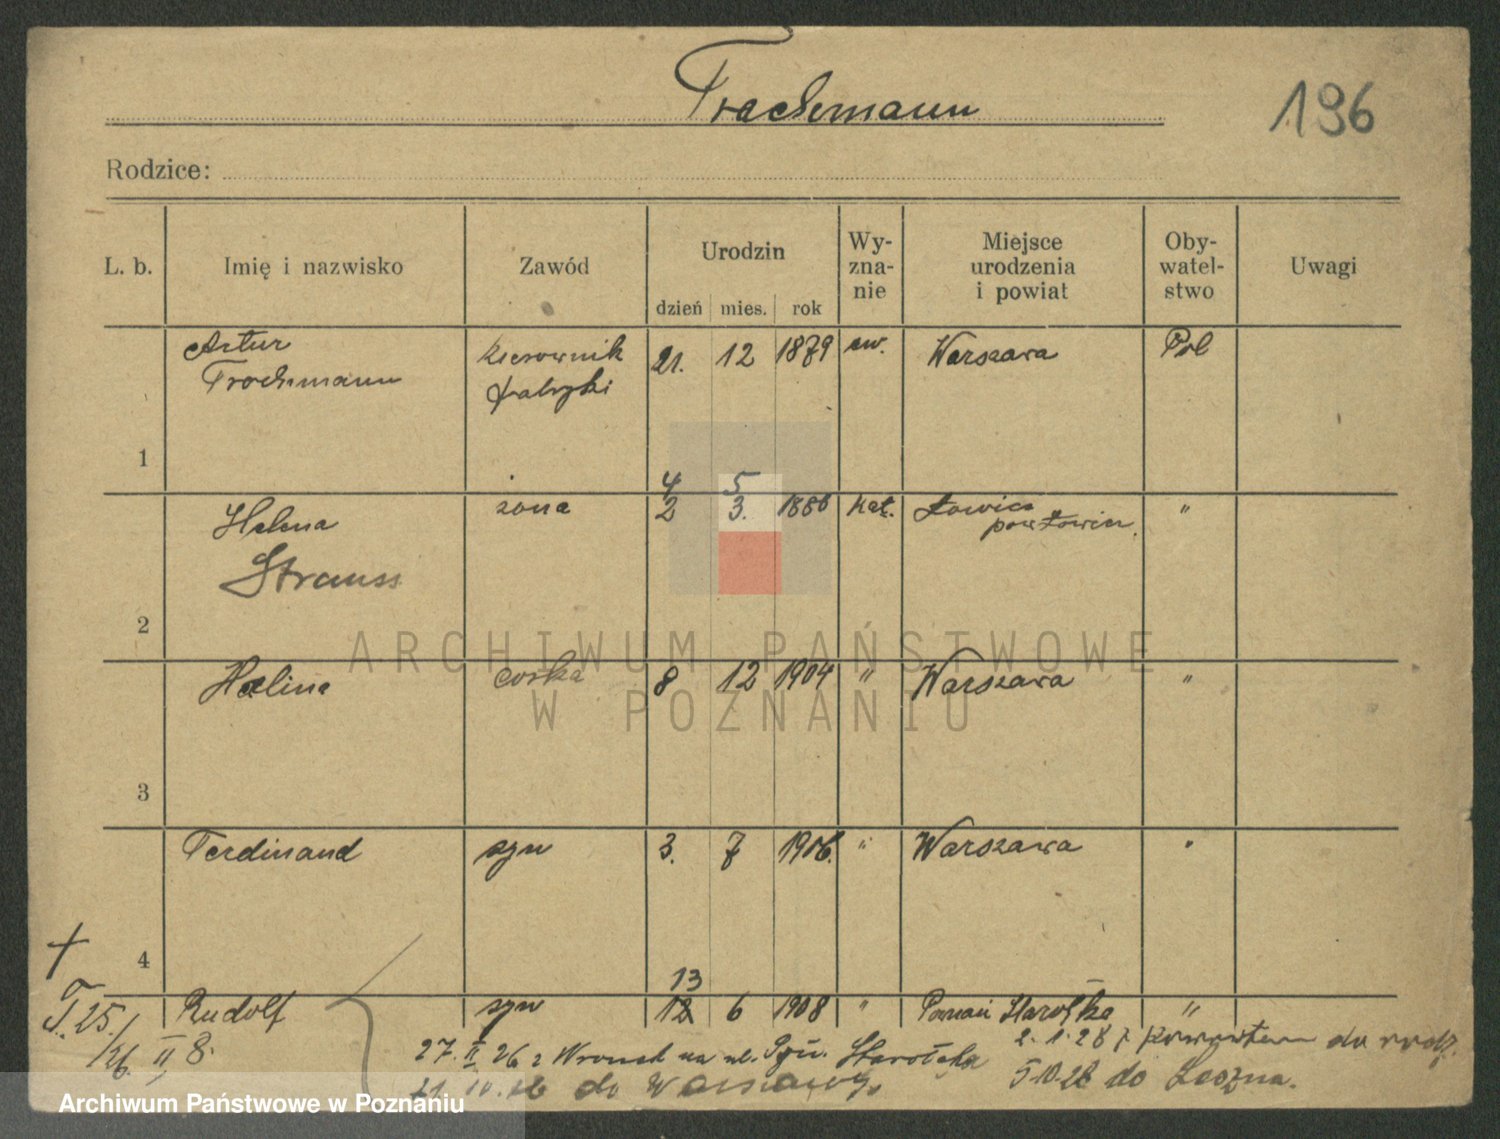 Trochemann
196
Rodzice:
L. b. Imię i nazwisko Zawód Urodzin dzień mies. rok Wy- zna- nie Miejsce urodzenia i powiat Oby- watel- stwo Uwagi
Artur Kierownik 21. 12 1879 ew. Warszawa Pol
Trochemann fabryki
1
4 5
Helena żona 2 3. 1886 kat. Łowicz "
pow. Łowicz.
Strauss
2
ARCHIWUM PAŃSTWOWE
W POZNANIU
Halina corka 8 12 1904 " Warszawa "
3
Ferdinand syn 3. 7 1906. " Warszawa "
4
13
Rudolf syn 12 6 1908 " Poznań Starołęka "
T. 25. 2. 1. 28 z powrotem do
/26 II 8. 27. II 26 z Wronek na ul. Starołęka
21. IV. 26 do Warszawy 5.10.28 do
Archiwum Państwowe w Poznaniu